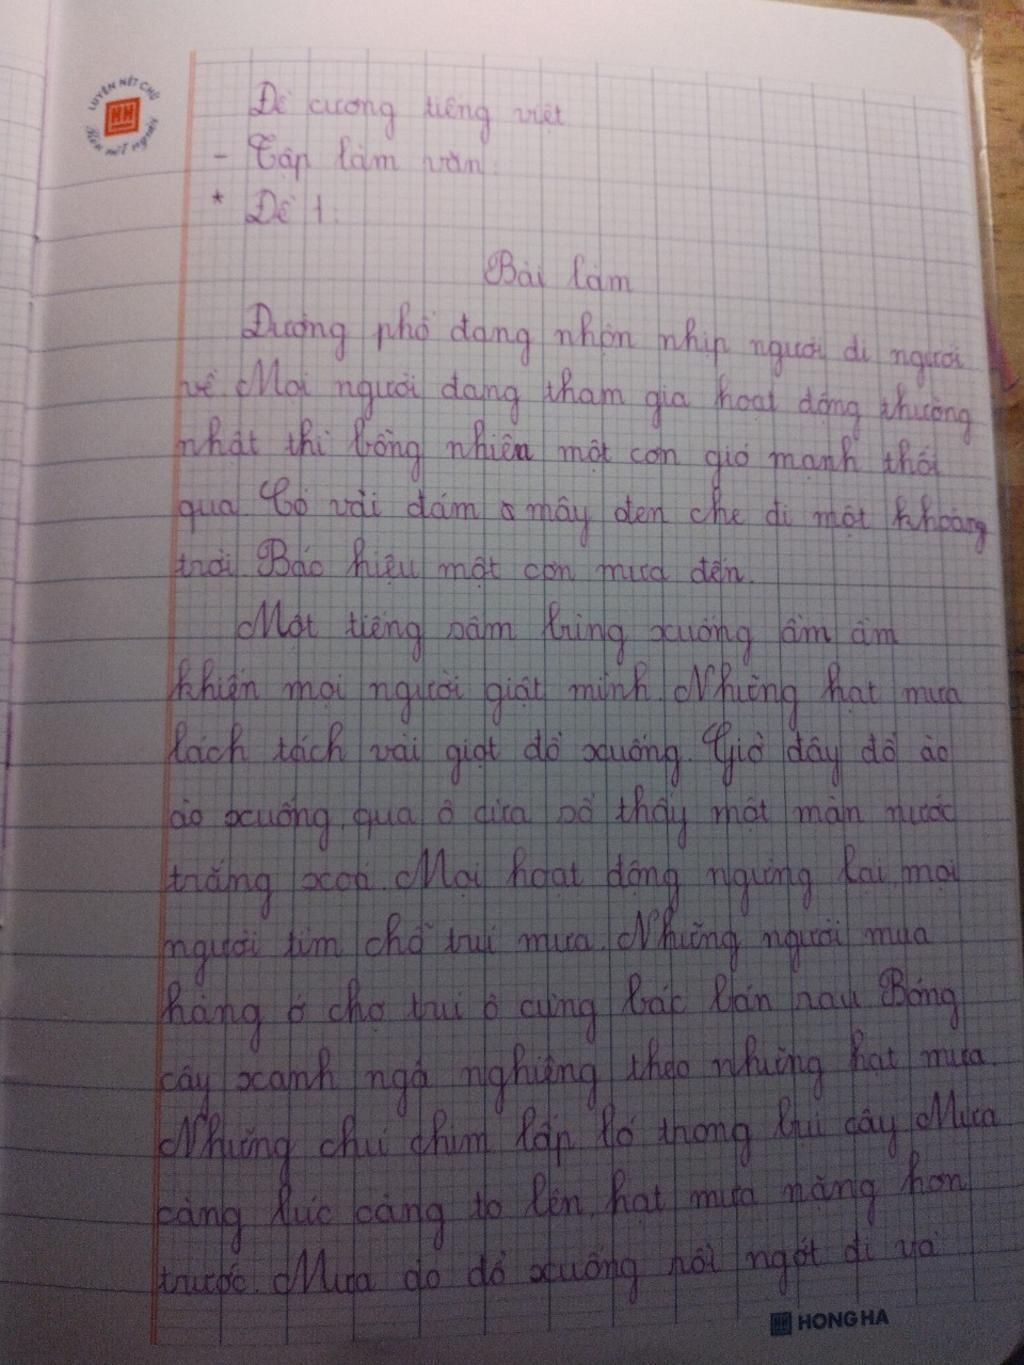 LUYỆN NÉT CHỮ
HH
Rèn nết người
Đề cương tiếng việt
- Tập làm văn.
* Đề 1:
Bài làm
Đường phố đang nhộn nhịp người đi người
về. Mọi người đang tham gia hoạt động thường
nhật thì bỗng nhiên một cơn gió mạnh thổi
qua. Có vài đám mây đen che đi một khoảng
trời. Báo hiệu một cơn mưa đến.
Một tiếng sấm xuống ầm ầm
khiến mọi người giật mình. Những hạt mưa
lách tách vài giọt đổ xuống. Giờ đây đổ ào
ào xuống, qua ô cửa sổ thấy một màn nước
trắng xoá. Mọi hoạt động ngừng lại, mọi
người tìm chỗ trú mưa. Những người mua
hàng ở chợ trú ô cùng bác bán rau. Bóng
cây xanh ngả nghiêng theo những hạt mưa.
Những chú chim lấp ló trong bụi cây. Mưa
càng lúc càng to lên, hạt mưa nặng hơn
trước. Mưa đổ xuống rồi ngớt đi và
HONG HA